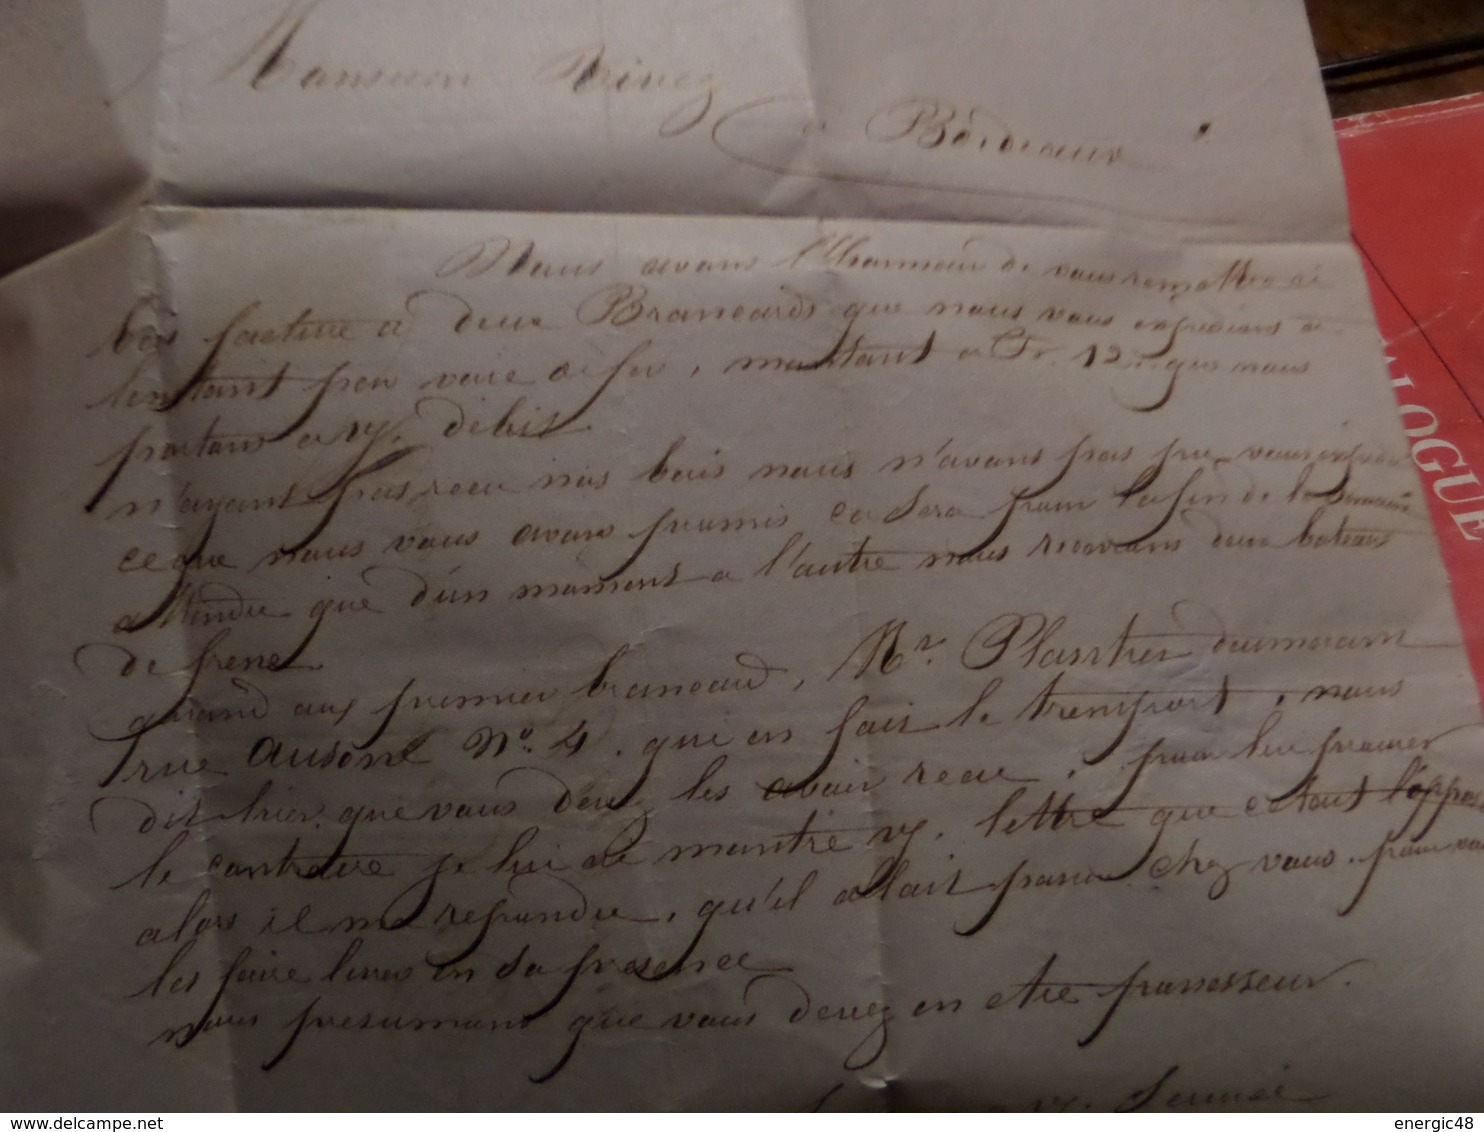 Monsieur Rivez
a Bordeaux
Nous avons l'honneur de vous remettre ci
bas facture a deux Brancards que nous vous expedions a
linstant par voie de fer, montant a Fr. 12. que nous
portons a vy. debit.
n'ayant pas recu nos bois nous n'avons pas pu vous expedier
ce que nous vous avons promis ce sera pour la fin de la semaine
attendu que d'un moment a l'autre nous recevrons deux bateaux
de frene
quand aux premier brancard, Mr. Plantier demeurant
rue Ausone No. 4. qui en fait le transport, nous
dit hier que vous devez les avoir recu, pour lui prouver
le contraire je lui ai montré vy. lettre que
alors il ma repondu, qu'il allait passer chez vous. pour
les faire livrer en sa presence
nous presumons que vous devez en etre possesseur.
CATALOGUE
energic48